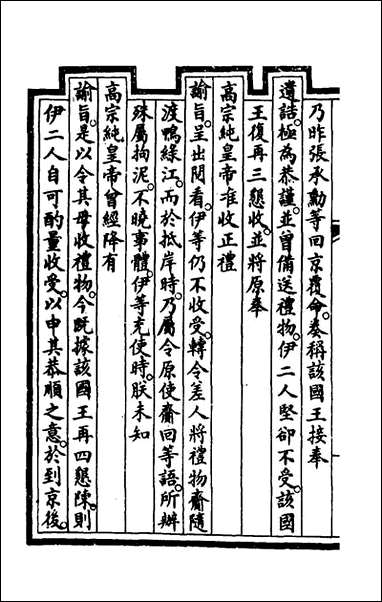 乃昨張承勳等回京覆命。奏稱該國王接奉
遺誥。極為恭謹。並曾備送禮物。伊二人堅卻不受。該國
王復再三懇收。並將原奉
高宗純皇帝准收正禮
諭旨。呈出閱看。伊等仍不收受。轉令差人將禮物齎隨
渡鴨綠江。而於抵岸時。乃屬令原使齎回等語。所辦
殊屬拘泥。不曉事體。伊等充使時。朕未知
高宗純皇帝曾經降有
諭旨。是以令其毋收禮物。今既據該國王再四懇陳。則
伊二人自可酌量收受。以申其恭順之意。於到京後。